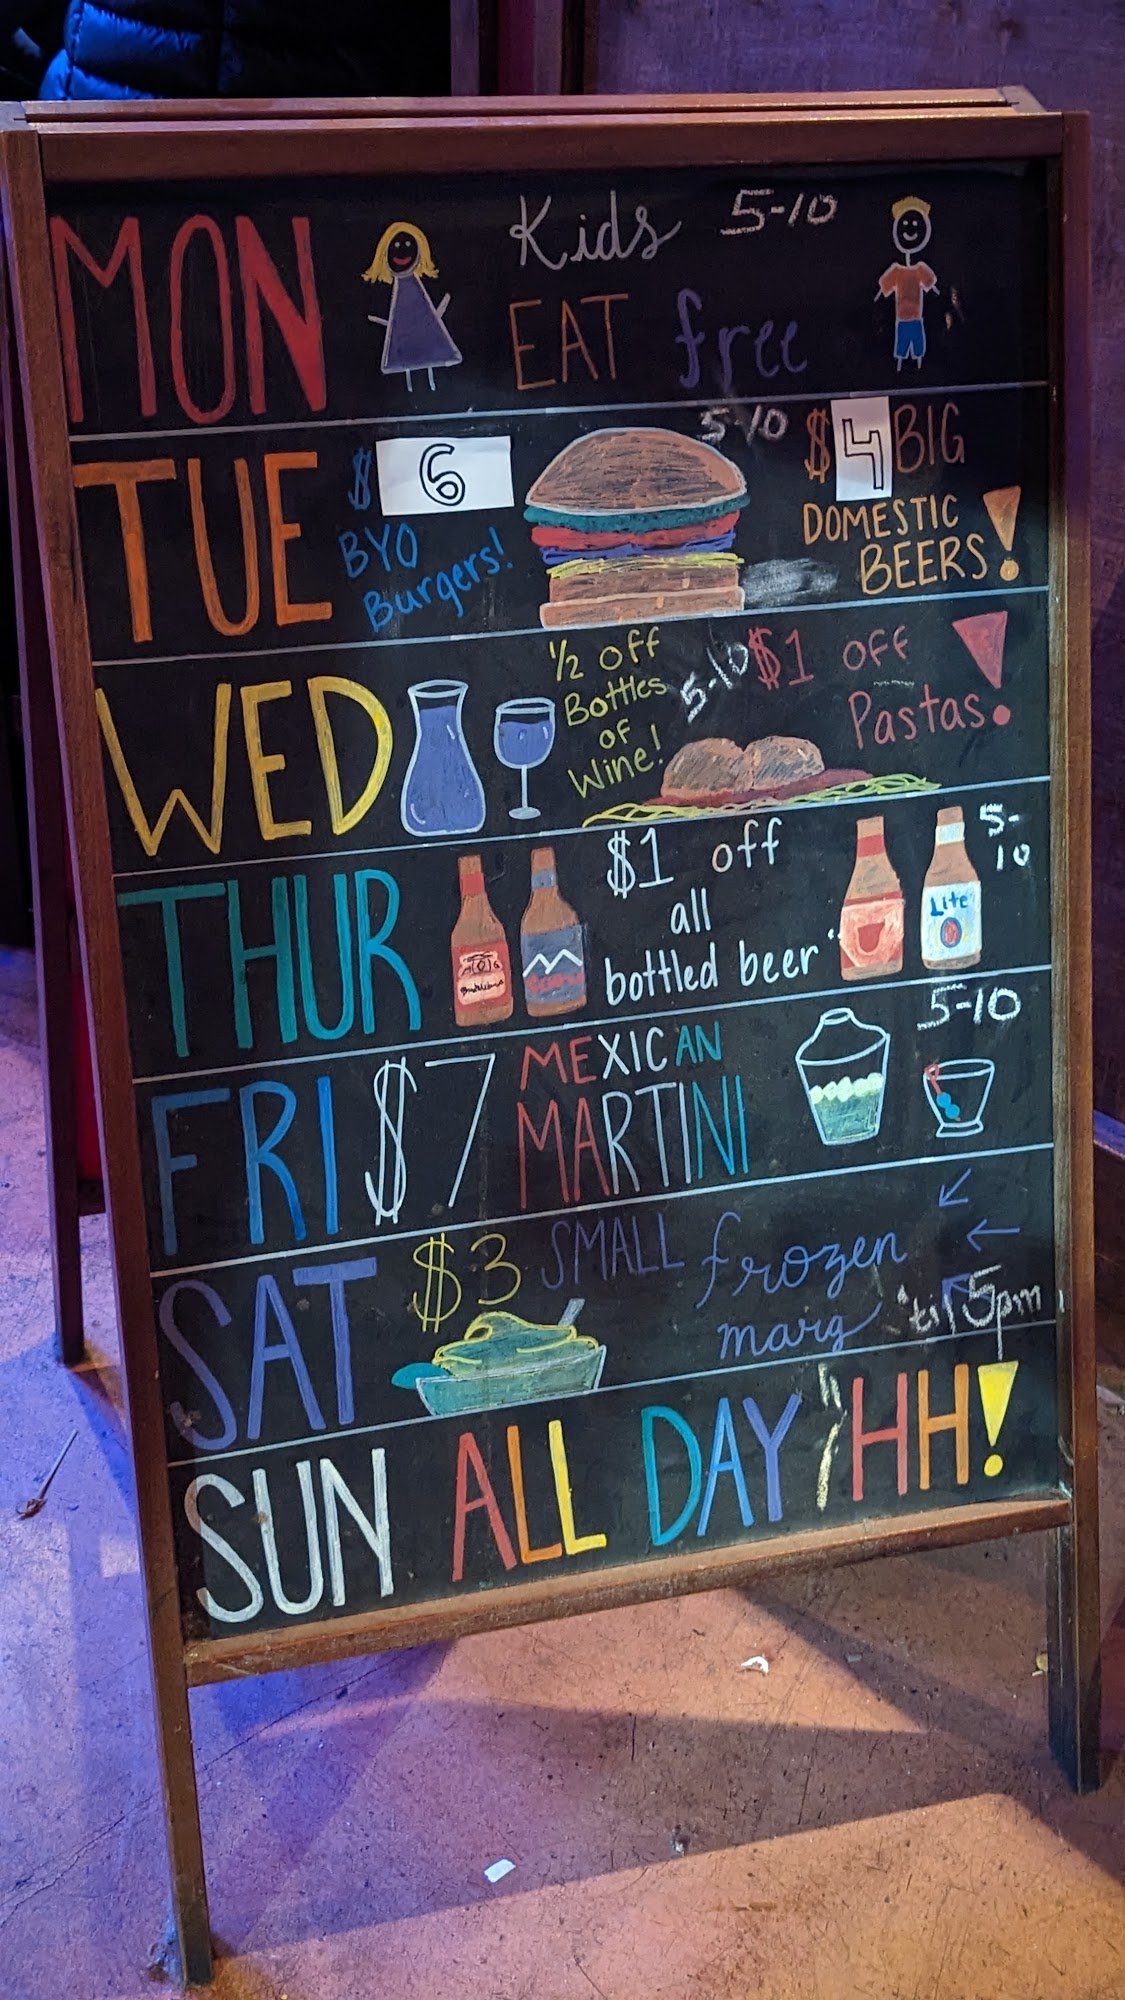 MON Kids 5-10
EAT free
TUE $6 5-10 $4 BIG
BYO DOMESTIC
Burgers! BEERS!
WED 1/2 off 5-10 $1 off
Bottles Pastas!
of
Wine!
THUR $1 off 5-
10
all
bottled beer
Lite
FRI $7 MEXICAN 5-10
MARTINI
SAT $3 SMALL frozen
marg 'til 5pm
SUN ALL DAY HH!